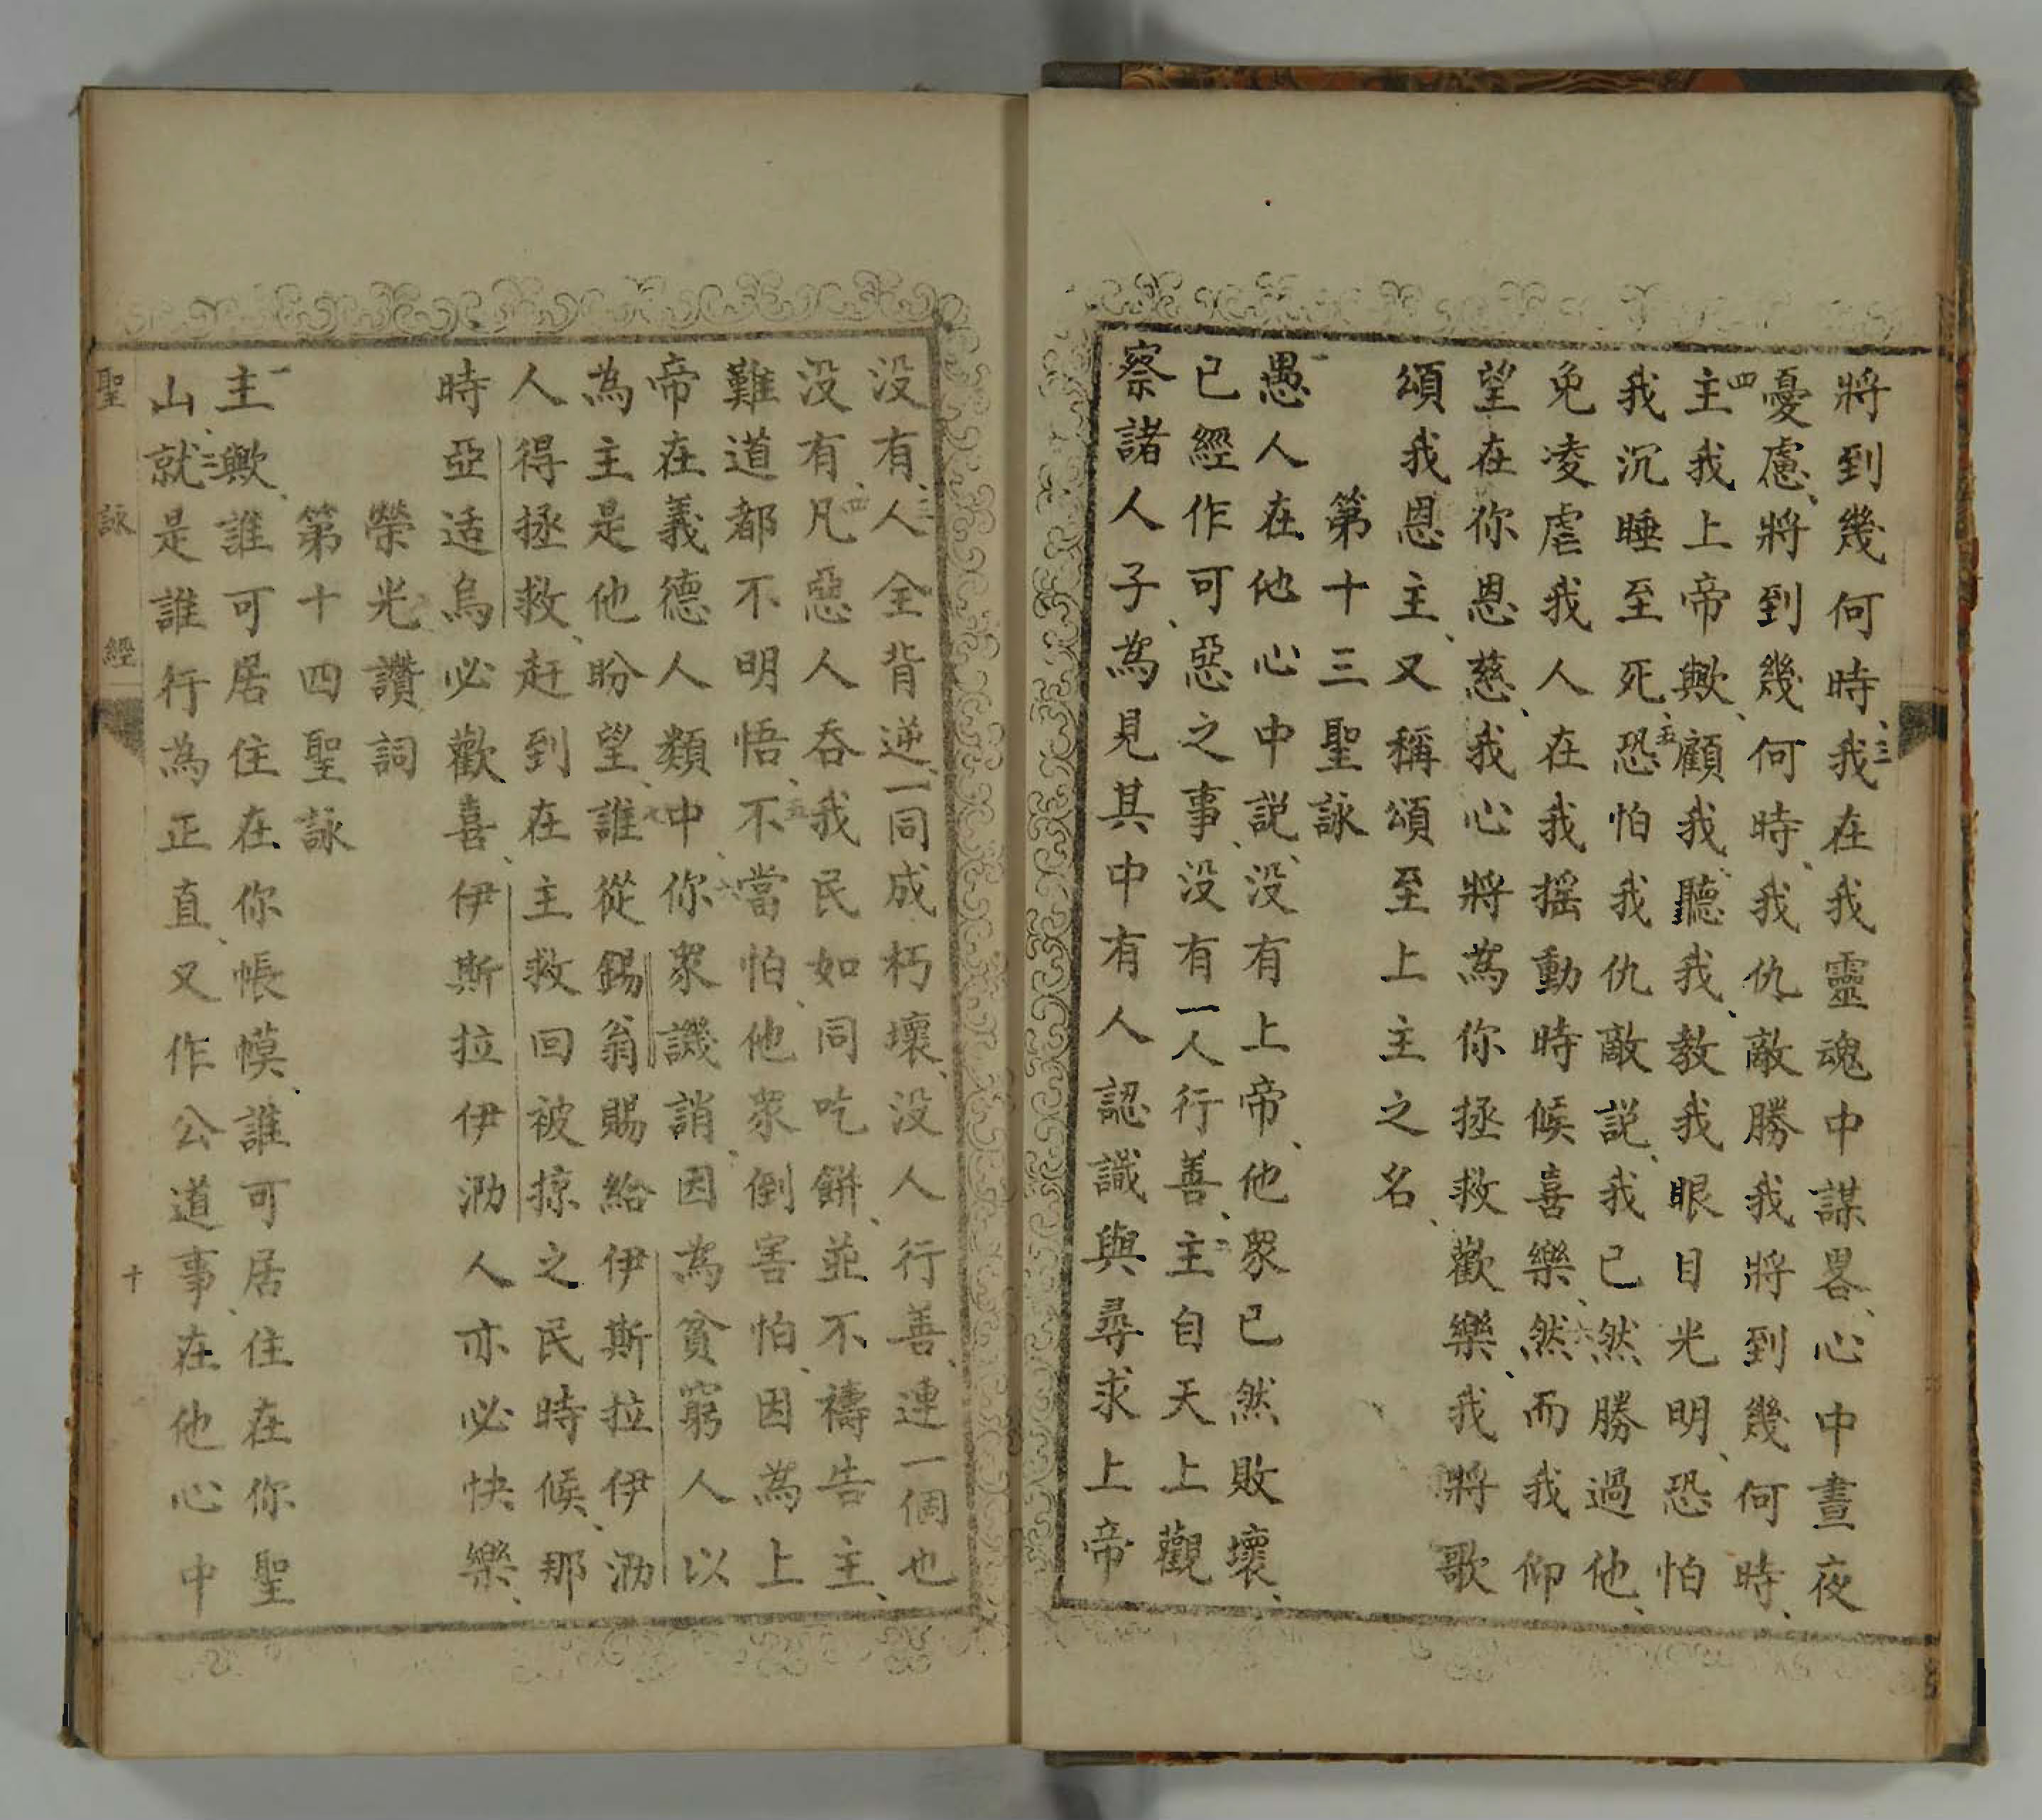 將到幾何時、三我在我靈魂中謀畧、心中晝夜
憂慮、將到幾何時、我仇敵勝我將到幾何時、
四主我上帝歟、顧我、聽我、教我眼目光明、恐怕
我沉睡至死、五恐怕我仇敵説、我已然勝過他、
免凌虐我人在我摇動時候喜樂、六然而我仰
望在你恩慈、我心將為你拯救歡樂、我將歌
頌我恩主、又稱頌至上主之名、
第十三聖詠
一愚人在他心中説、没有上帝、他眾已然敗壞、
已經作可惡之事、没有一人行善、二主自天上觀
察諸人子、為見其中有人認識與尋求上帝
没有、三人全背逆、一同成朽壞、没人行善、連一個也
没有、四凡惡人吞我民如同吃餅、並不禱告主、
難道都不明悟、五不當怕、他眾倒害怕、因為上
帝在義德人類中、六你眾譏誚、因為貧窮人以
為主是他盼望、七誰從錫翁賜給伊斯拉伊泐
人得拯救、赶到在主救回被掠之民時候、那
時亞适烏必歡喜、伊斯拉伊泐人亦必快樂、
榮光讚詞
第十四聖詠
一主歟、誰可居住在你帳幙、誰可居住在你聖
山、二就是誰行為正直、又作公道事、在他心中
聖詠經 十